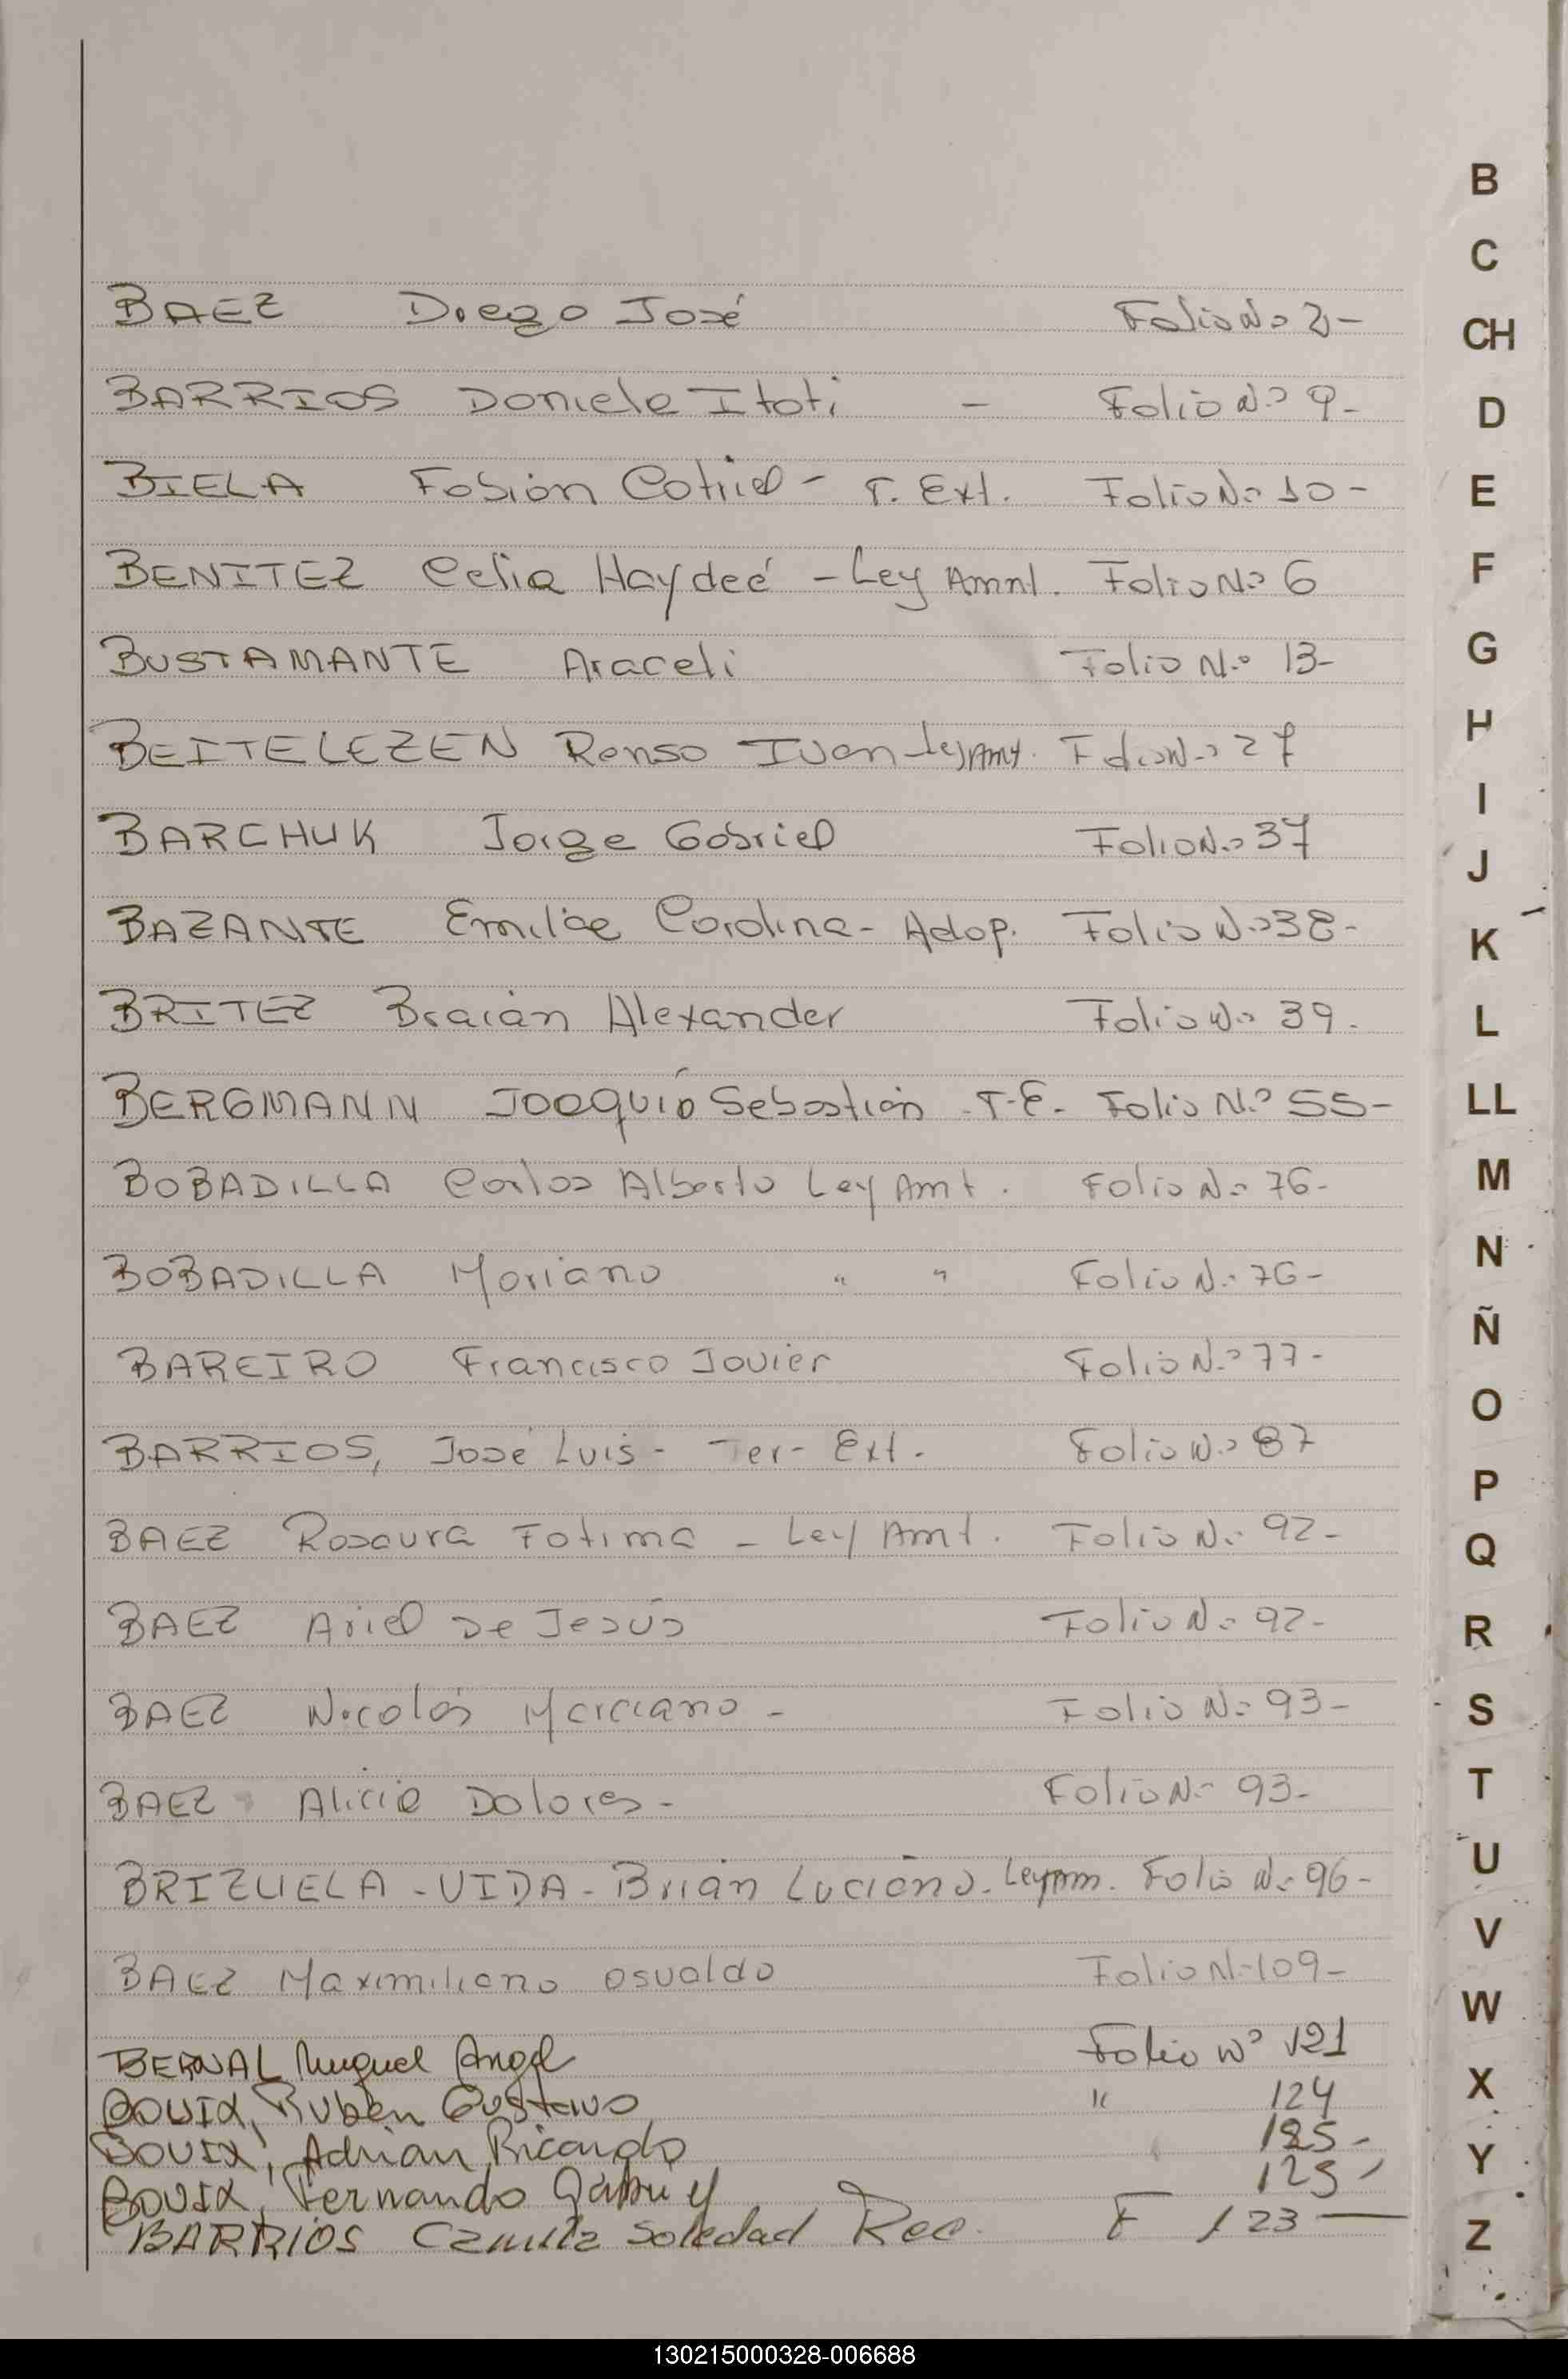 BAEZ Diego José Folio Nº 2-
BARRIOS Daniela Itati - Folio Nº 9-
BIELA Fabián Cotriel - T. Ext. Folio Nº 10-
BENITEZ Celia Haydeé - Ley Amnt. Folio Nº 6
BUSTAMANTE Araceli Folio Nº 13-
BEITELEZEN Renso Ivan - Ley Amt. Folio Nº 27
BARCHUK Jorge Gabriel Folio Nº 37
BAZANTE Emilce Carolina - Adop. Folio Nº 38-
BRITEZ Braian Alexander Folio Nº 39.
BERGMANN Joaquín Sebastián - T.E. - Folio Nº 55-
BOBADILLA Carlos Alberto Ley Amt. Folio Nº 76-
BOBADILLA Mariano " " Folio Nº 76-
BAREIRO Francisco Javier Folio Nº 77-
BARRIOS, José Luis - Ter - Ext. Folio Nº 87
BAEZ Rosaura Fatima - Ley Amt. Folio Nº 92-
BAEZ Ariel De Jesús Folio Nº 92-
BAEZ Nicolás Marciano - Folio Nº 93-
BAEZ Alicia Dolores - Folio Nº 93-
BRIZUELA - VIDA - Brián Luciano - Ley Am. Folio Nº 96-
BAEZ Maximiliano Osvaldo Folio Nº 109-
BERNAL Miguel Angel Folio Nº 121
BOUIX, Rubén Gustavo " 124
BOUIX, Adrian Ricardo 125-
BOUIX, Fernando 125-
BARRIOS Camila Soledad Rec. F 123
B
C
CH
D
E
F
G
H
I
J
K
L
LL
M
N
Ñ
O
P
Q
R
S
T
U
V
W
X
Y
Z
130215000328-006688